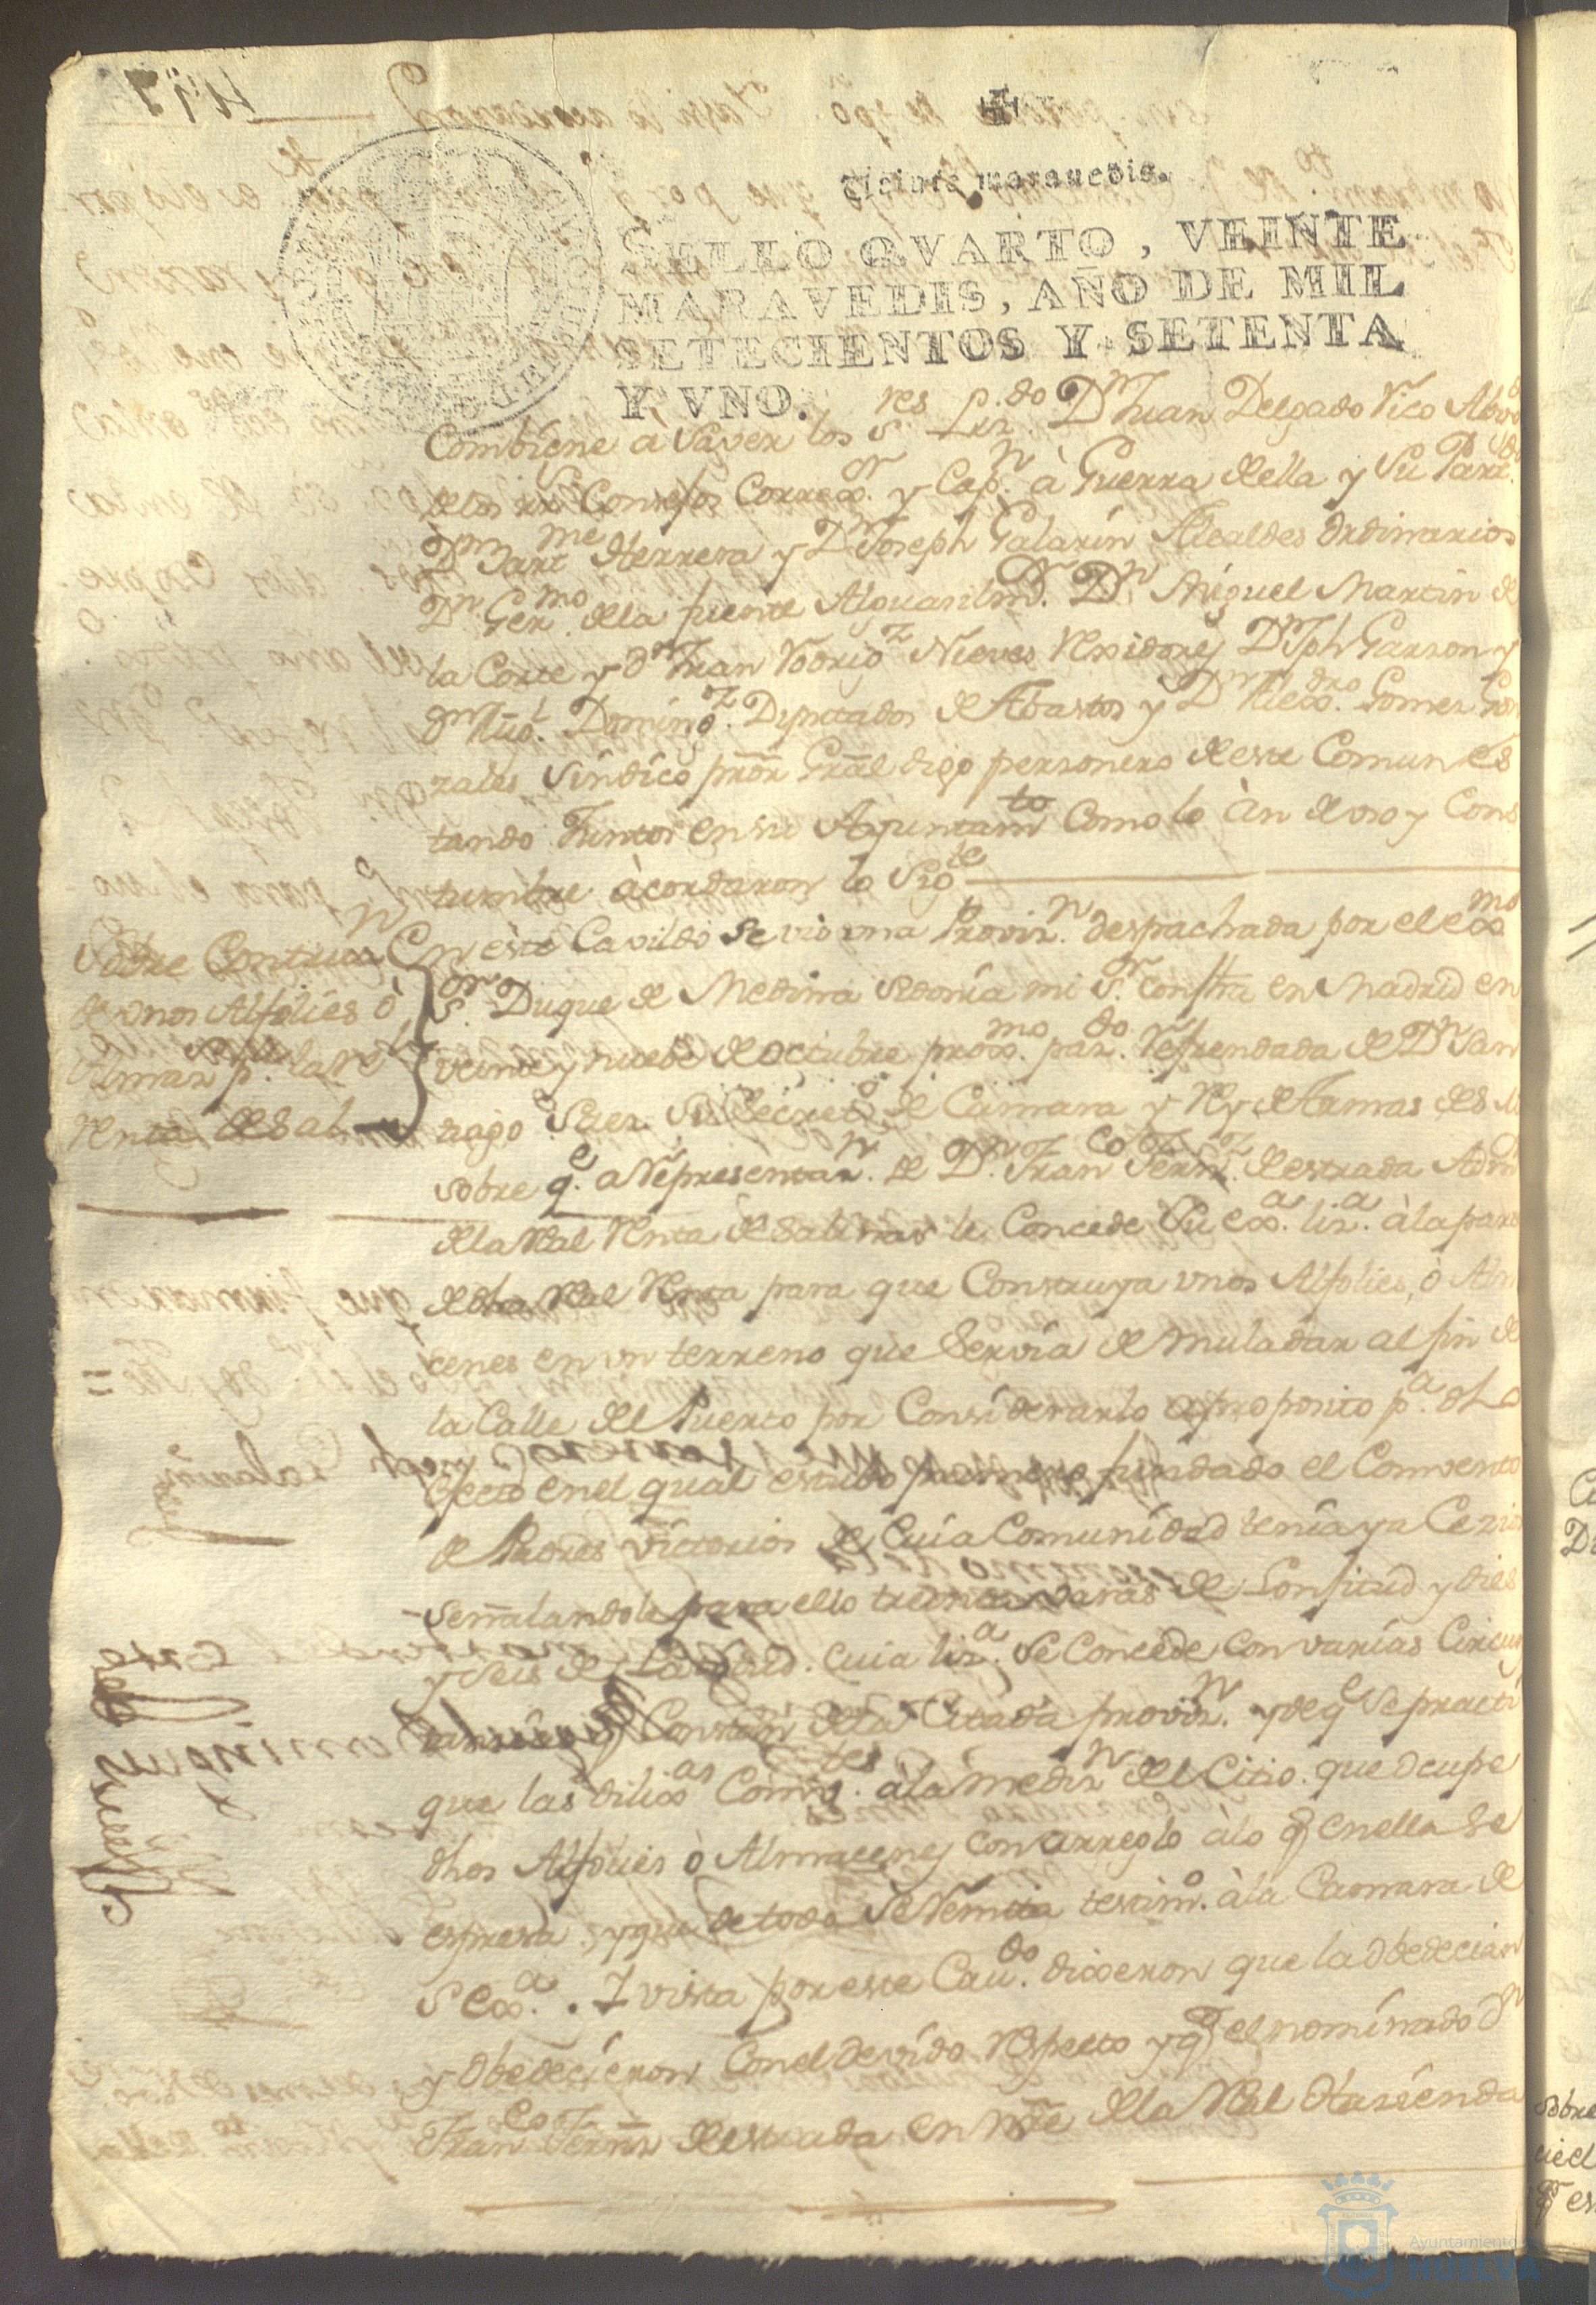 Veinte marauedis.
SELLO QVARTO, VEINTE
MARAVEDIS, AÑO DE MIL
SETECIENTOS Y SETENTA
Y VNO.
Combiene à Saver los S.res Liz.do Dn Juan Delgado Vico Abogdo
de los Rs Consejos Correx.or y Cap.n à Guerra della y Su Part.do
Dn Bartme Herrera y Dn Joseph Galarin Alcaldes Ordinarios
Dn Germo. de la fuente Alguasil mr. Dn Miguel Martin de
la Corte y dn Juan Rodrigz Nieves Rexidores Dn Jph Garzon y
dn Domingz. Diputados de Abastos y Dn Alexdro. Gomez Gon
zales Sindico pror Gral digo personero de este Comun es
tando Juntos en su Ayuntamto Como lo àn de uso y Cons
tumbre àcordaron lo Sigte
Sobre Contruon
de unos Alfolies ò
Almazs pa. la Rl
Renta de Sal
En este Cavildo Se vio una Provizn. despachada por el exmo
Sor. Duque de Medina Sidonia mi Sr. en Madrid en
veinte y nueve de Octubre proxmo. pazdo. Refrendada de Dn San
tiago Saez Su Secreto de Camara y Rey de Armas de S M
sobre qe. a Representazn. de Dn. Franco Fernz. de estrada Admr
de la Real Renta de Salinas le Concede Su Exa. liza. à la parte
de dha Real Renta para que Construya unos Alfolies, ò Alma
cenes en un terreno que Servia de muladar al fin de
la Calle del Puerto por Considerarlo apropocito pa. dho
efecto en el qual estubo primero fundado el Convento
de Padres Victorios de Cuia Comunidad tenia ya Cerio
Señalandole para ello treinta varas de Lonjitud y dies
y seis de Latitud. Cuia liza. Se Concede con varias Circun
tansias qe Constan de la Citada provizn. y de qe Se practi
que las diligas Combtes. à la medizn del Citio. que ocupe
dhos Alfolies ò Almacenes con arreglo àlo qe en ella Se
espresa, y que de todo Se Remita testimo. à la Camara de
S Exa. Y vista por este Cavdo. dixeron que la Obedecian
y Obedecieron Con el devido Respecto y qe el nominado Dn
Franco Fernz de estrada en Nre de la Real Hasienda
Ayuntamiento
HUELVA